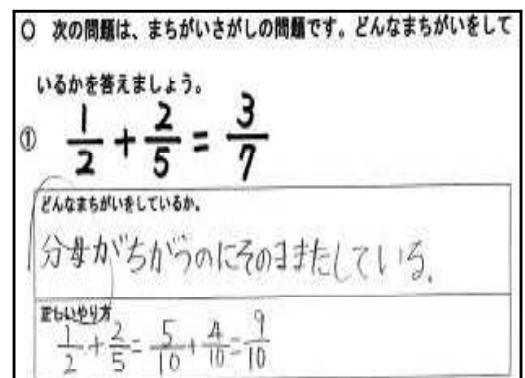 ○ 次の問題は、まちがいさがしの問題です。どんなまちがいをして
いるかを答えましょう。
① 1/2 + 2/5 = 3/7
どんなまちがいをしているか。
分母がちがうのにそのままたしている.
正しいやり方
1/2 + 2/5 = 5/10 + 4/10 = 9/10